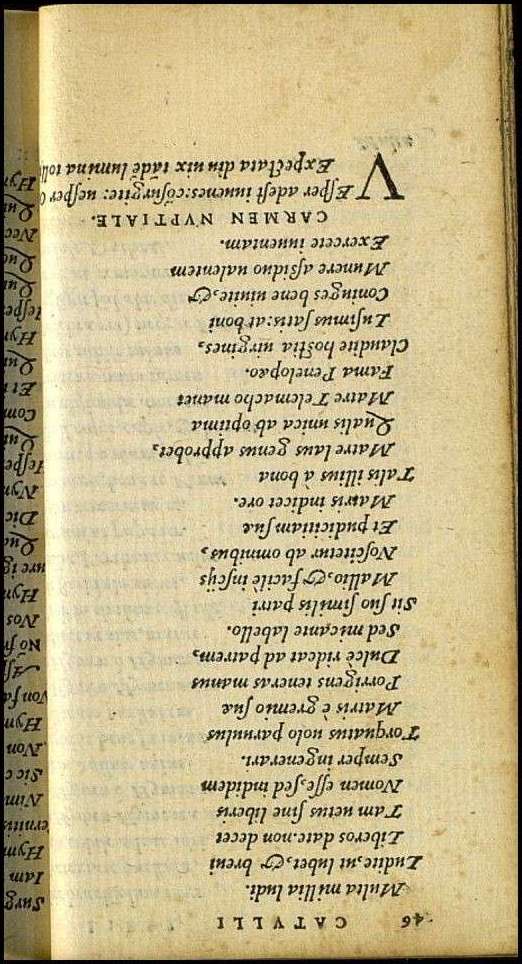 46 CATVLLI
Multa millia ludi.
Ludite, ut lubet, & breui
Liberos date. non decet
Tam uetus sine liberis
Nomen esse, sed indidem
Semper ingenerari.
Torquatus uolo paruulus
Matris è gremio suæ
Porrigens teneras manus
Dulcè rideat ad patrem,
Sed micante labello.
Sit suo similis patri
Mallio, & facilè insciis
Noscitetur ab omnibus,
Et pudicitiam suæ
Matris indicet ore.
Talis illius à bona
Matre laus genus approbet,
Qualis unica ab optima
Matre Telemacho manet
Fama Penelopæo.
Claudite hostia uirgines,
Lusimus satis: at boni
Coniuges bene uiuite, &
Munere assiduo ualentem
Exercete iuuentam.
CARMEN NVPTIALE.
VEsper adest iuuenes: cōsurgite: uesper O
Expectata diu uix tādē lumina toll
Surg
Iam
Hym
ernitis
Nim
Sic c
Non
Hym
Non fa
Nos
Hym
ure ig
Dic
Nym
Com
Et t
Qui
Hym
Nec
Qui
Hym